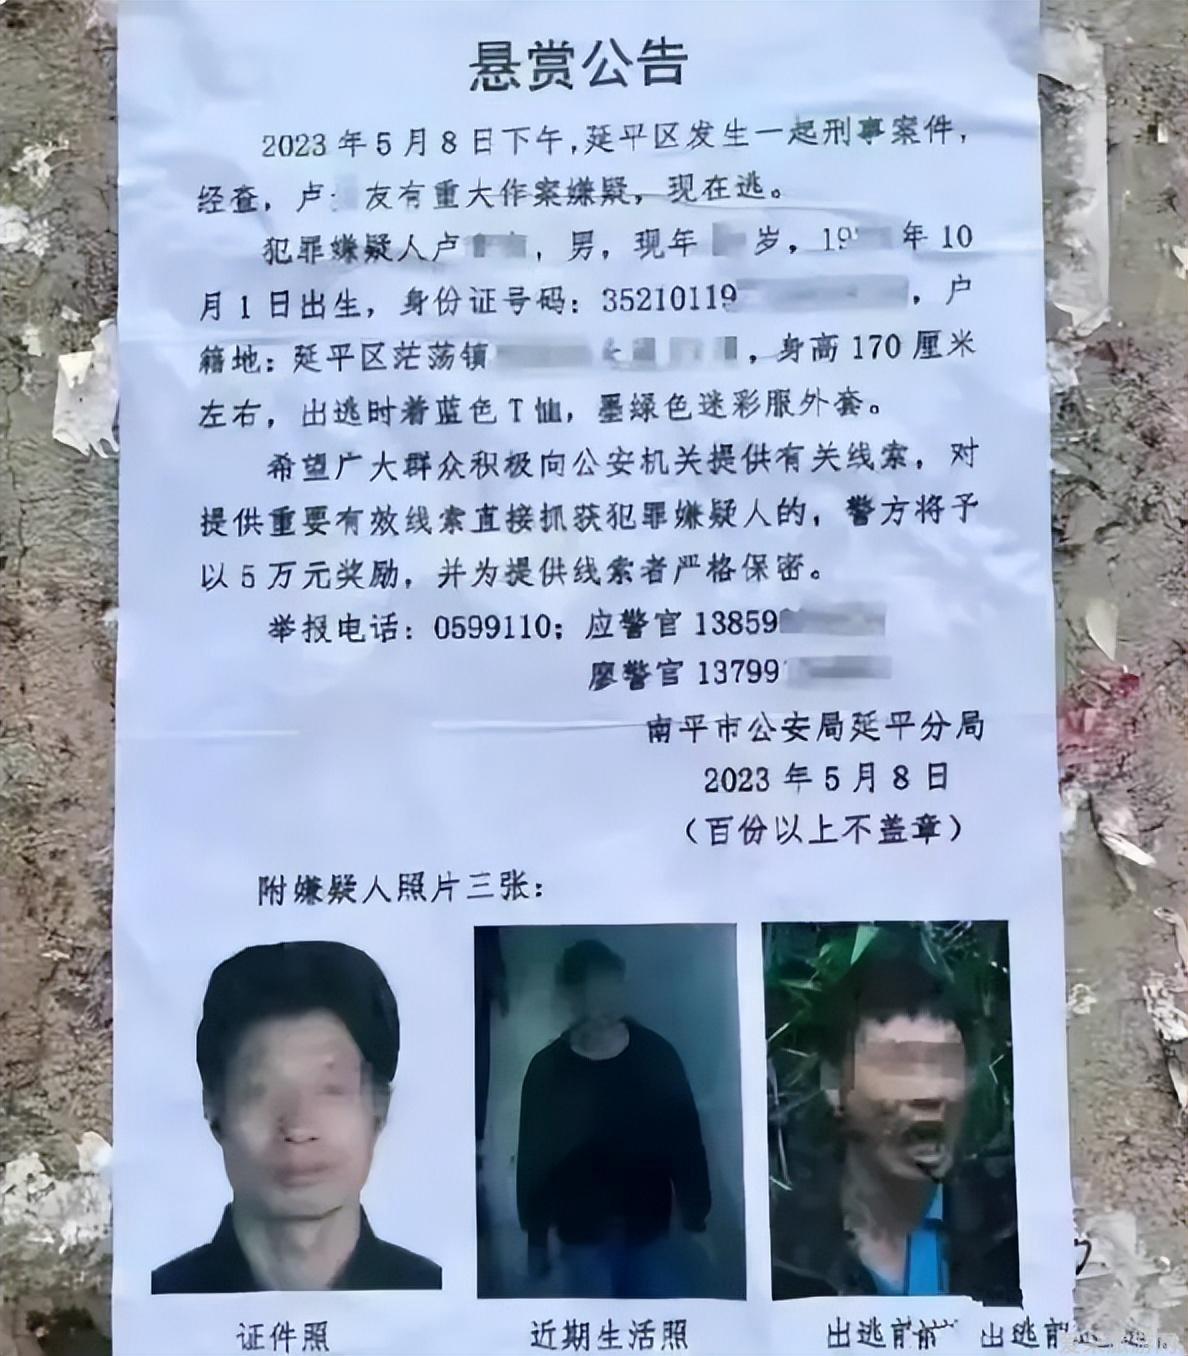 悬赏公告
2023年5月8日下午,延平区发生一起刑事案件,
经查,卢 友有重大作案嫌疑,现在逃。
犯罪嫌疑人卢 ,男,现年 岁,19 年10
月1日出生,身份证号码:35210119 ,户
籍地:延平区茫荡镇 ,身高170厘米
左右,出逃时着蓝色T恤,墨绿色迷彩服外套。
希望广大群众积极向公安机关提供有关线索,对
提供重要有效线索直接抓获犯罪嫌疑人的,警方将予
以5万元奖励,并为提供线索者严格保密。
举报电话:0599110;应警官13859
廖警官13799
南平市公安局延平分局
2023年5月8日
(百份以上不盖章)
附嫌疑人照片三张:
证件照 近期生活照 出逃前 出逃前